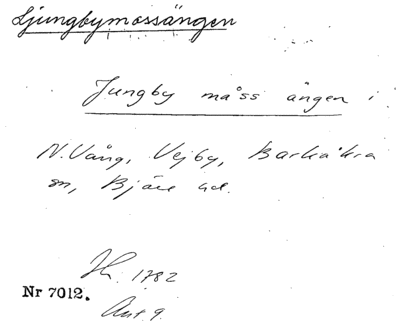 Ljungbymossängen
Jungby måss ängen i
N. Vång, Vejby, Barkåkra
sn, Bjäre hd.
Hr. 1782
Nr 7012.
Akt 9.